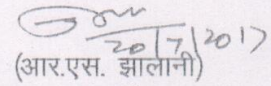 20/7/2017
(आर.एस. झालानी)